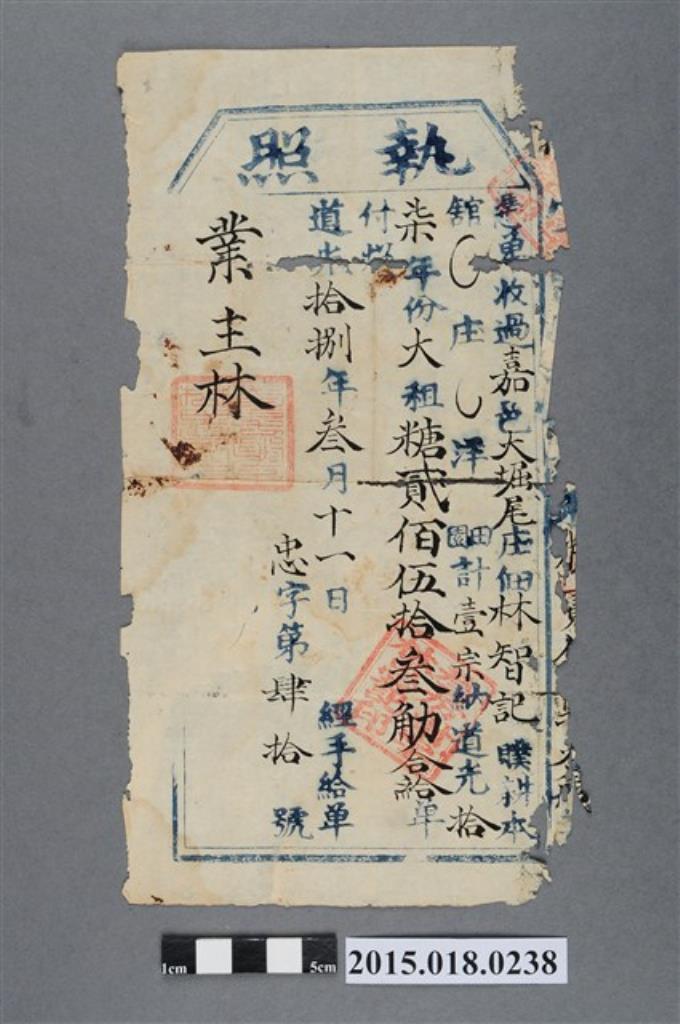 執照
業更收過嘉邑大堀尾庄佃林智記贌耕本
舘庄洋田園計壹宗納道光拾
柒年份大租糖貳佰伍拾叁觔合給單
付炤
道光拾捌年叁月十一日經手給单
忠字第肆拾號
業主林
1cm 5cm
2015.018.0238